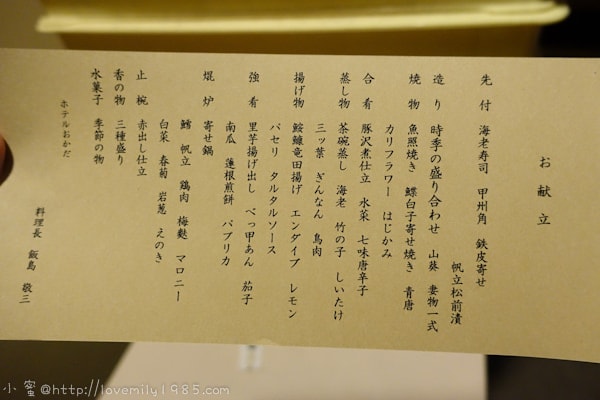 お献立
先付　海老寿司　甲州角　鉄皮寄せ
帆立松前漬
造り　時季の盛り合わせ　山葵　妻物一式
焼物　魚照焼き　鰈白子寄せ焼き　青唐
カリフラワー　はじかみ
合肴　豚沢煮仕立　水菜　七味唐辛子
蒸し物　茶碗蒸し　海老　竹の子　しいたけ
三ッ葉　ぎんなん　鳥肉
揚げ物　鮟鱇竜田揚げ　エンダイブ　レモン
パセリ　タルタルソース
強肴　里芋揚げ出し　べっ甲あん　茄子
南瓜　蓮根煎餅　パプリカ
焜炉　寄せ鍋
鱈　帆立　鶏肉　梅麩　マロニー
白菜　春菊　岩葱　えのき
止椀　赤出し仕立
香の物　三種盛り
水菓子　季節の物
ホテルおかだ
料理長　飯島　敬三
小蜜@http://lovemily1985.com/